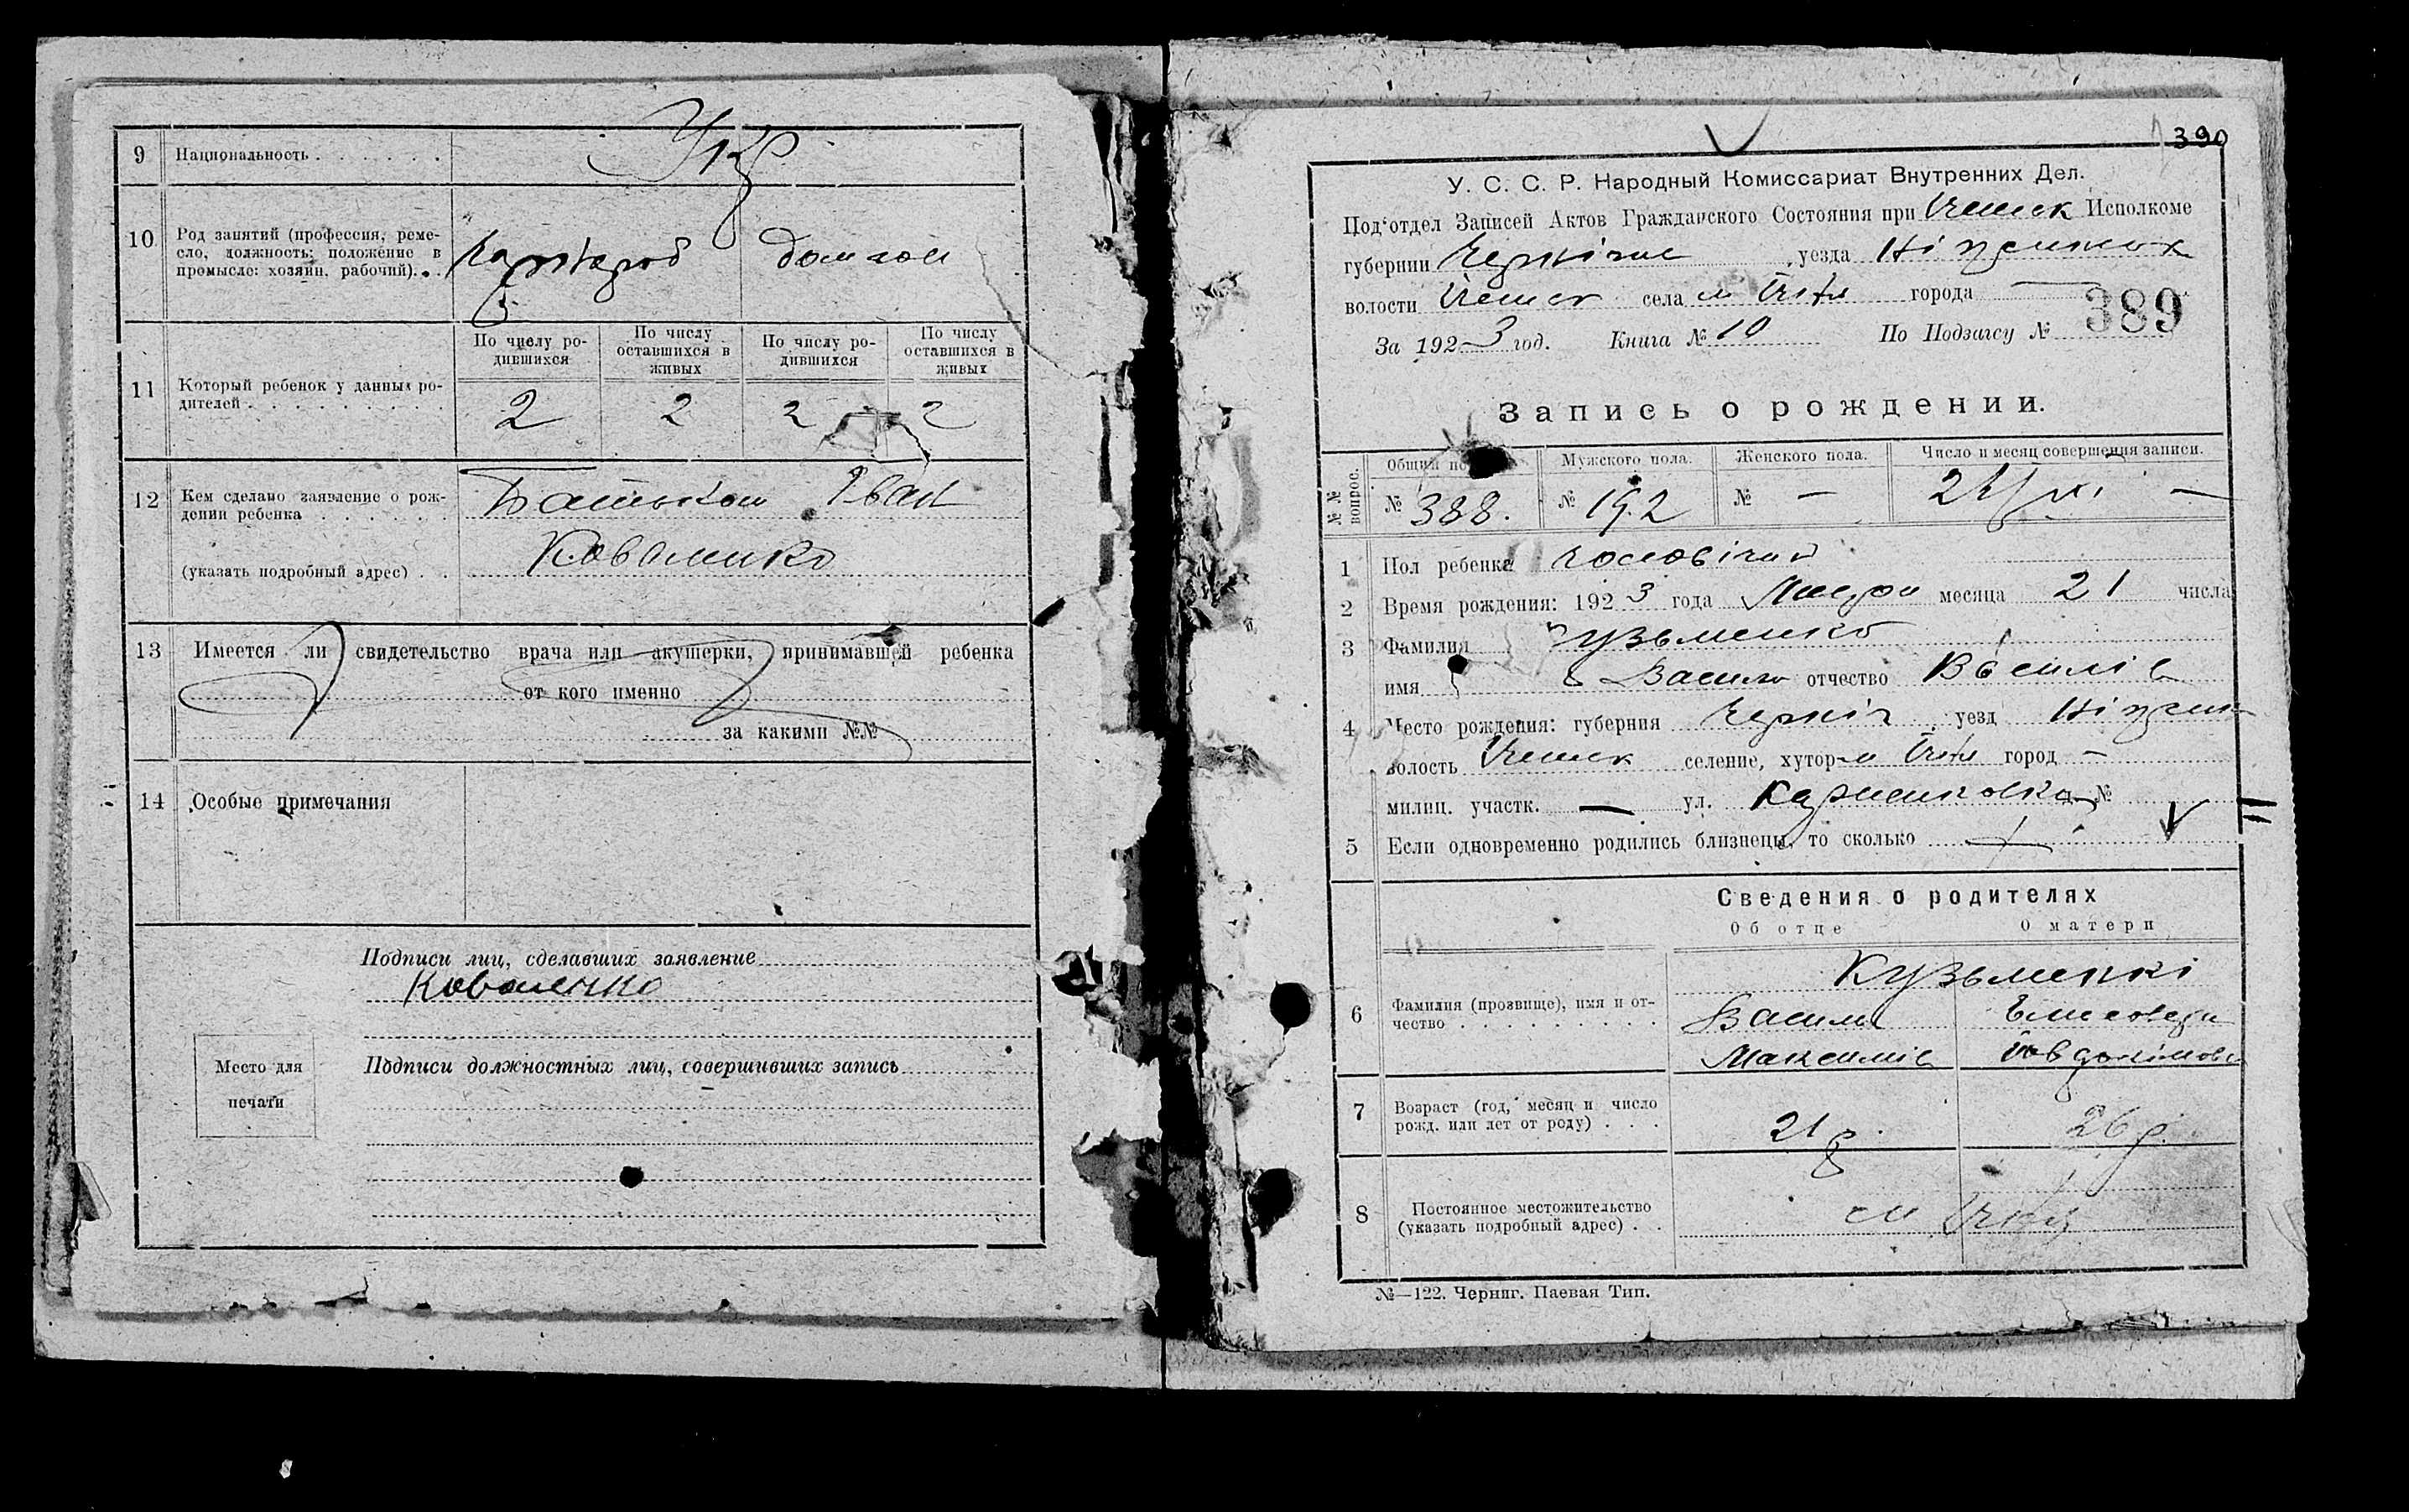 9 Национальность . . . . . . Укр
10 Род занятий (профессия, реме-
сло, должность: положение в
промысле: хозяин, рабочий). . . домгосп
11 Который ребенок у данных ро-
дителей . . . . . . . . . .
По числу ро-
дившихся
По числу
оставшихся в
живых
По числу ро-
дившихся
По числу
оставшихся в
живых
2 2 2 2
12 Кем сделано заявление о рож-
дении ребенка . . . . . . Батьком Іван
(указать подробный адрес) . . Коваленко
13 Имеется ли свидетельство врача или акушерки, принимавшей ребенка
от кого именно
за какими №№
14 Особые примечания
Подписи лиц, сделавших заявление
Коваленко
Место для
печати
Подписи должностных лиц, совершивших запись
390
У. С. С. Р. Народный Комиссариат Внутренних Дел.
Под'отдел Записей Актов Гражданского Состояния при Ічнянск Исполкоме
губернии уезда Ніженських
волости Ічнянск села м Ічня города —
За 1923 год. Книга № 10 По Подзагсу № 389
Запись о рождении.
№№ вопрос.
Общий
Мужского пола.
Женского пола.
Число и месяц совершения записи.
№ 388. № 192 № — —
1 Пол ребенка чоловічий
2 Время рождения: 1923 года месяца 21 числа
3 Фамилия Кузьменко
имя Василь отчество Василів
4 Место рождения: губерния Черніг уезд Ніжен
волость Ічнянск селение, хутор м Ічня город —
милиц. участк. — ул. №
5 Если одновременно родились близнецы, то сколько
Сведения о родителях
Об отце О матери
6 Фамилия (прозвище), имя и от-
чество . . . . . . . . .
Кузьменкі
Василь
Максимів
7 Возраст (год, месяц и число
рожд. или лет от роду) . . . 21 р. 26 р.
8 Постоянное местожительство
(указать подробный адрес) . . м Ічня
№—122. Черниг. Паевая Тип.